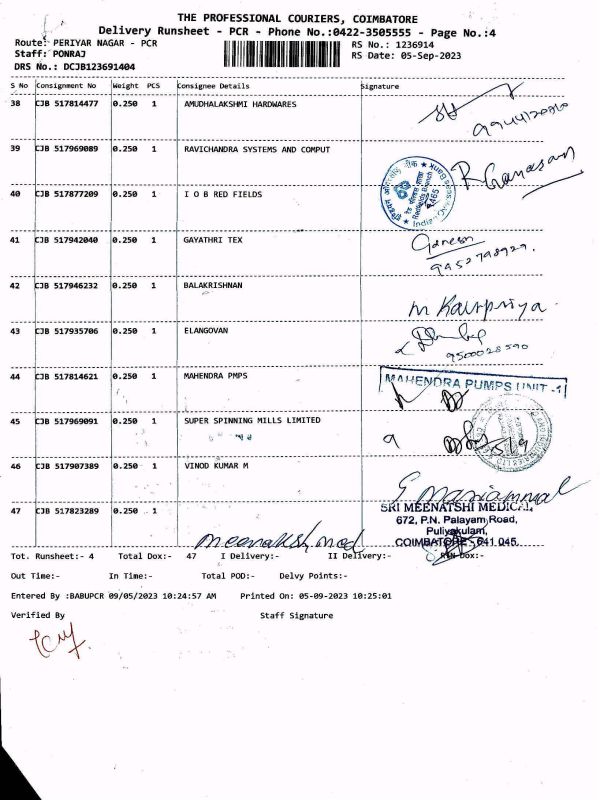 THE PROFESSIONAL COURIERS, COIMBATORE
Delivery Runsheet - PCR - Phone No.:0422-3505555 - Page No.:4
Route: PERIYAR NAGAR - PCR RS No.: 1236914
Staff: PONRAJ RS Date: 05-Sep-2023
DRS No.: DCJB123691404
S No Consignment No Weight PCS Consignee Details Signature
38 CJB 517814477 0.250 1 AMUDHALAKSHMI HARDWARES
39 CJB 517969089 0.250 1 RAVICHANDRA SYSTEMS AND COMPUT
R Ganasan
40 CJB 517877209 0.250 1 I O B RED FIELDS
41 CJB 517942040 0.250 1 GAYATHRI TEX Ganesh
9952798929.
42 CJB 517946232 0.250 1 BALAKRISHNAN
m Kavipriya.
43 CJB 517935706 0.250 1 ELANGOVAN
9500028590
44 CJB 517814621 0.250 1 MAHENDRA PMPS MAHENDRA PUMPS UNIT -1
45 CJB 517969091 0.250 1 SUPER SPINNING MILLS LIMITED
46 CJB 517907389 0.250 1 VINOD KUMAR M
G Maniammal
47 CJB 517823289 0.250 1 SRI MEENATSHI MEDICAL,
672, P.N. Palayam Road,
Puliyakulam,
meenakshi med COIMBATORE - 641 045.
Tot. Runsheet:- 4 Total Dox:- 47 I Delivery:- II Delivery:- Dox:-
Out Time:- In Time:- Total POD:- Delvy Points:-
Entered By :BABUPCR 09/05/2023 10:24:57 AM Printed On: 05-09-2023 10:25:01
Verified By Staff Signature